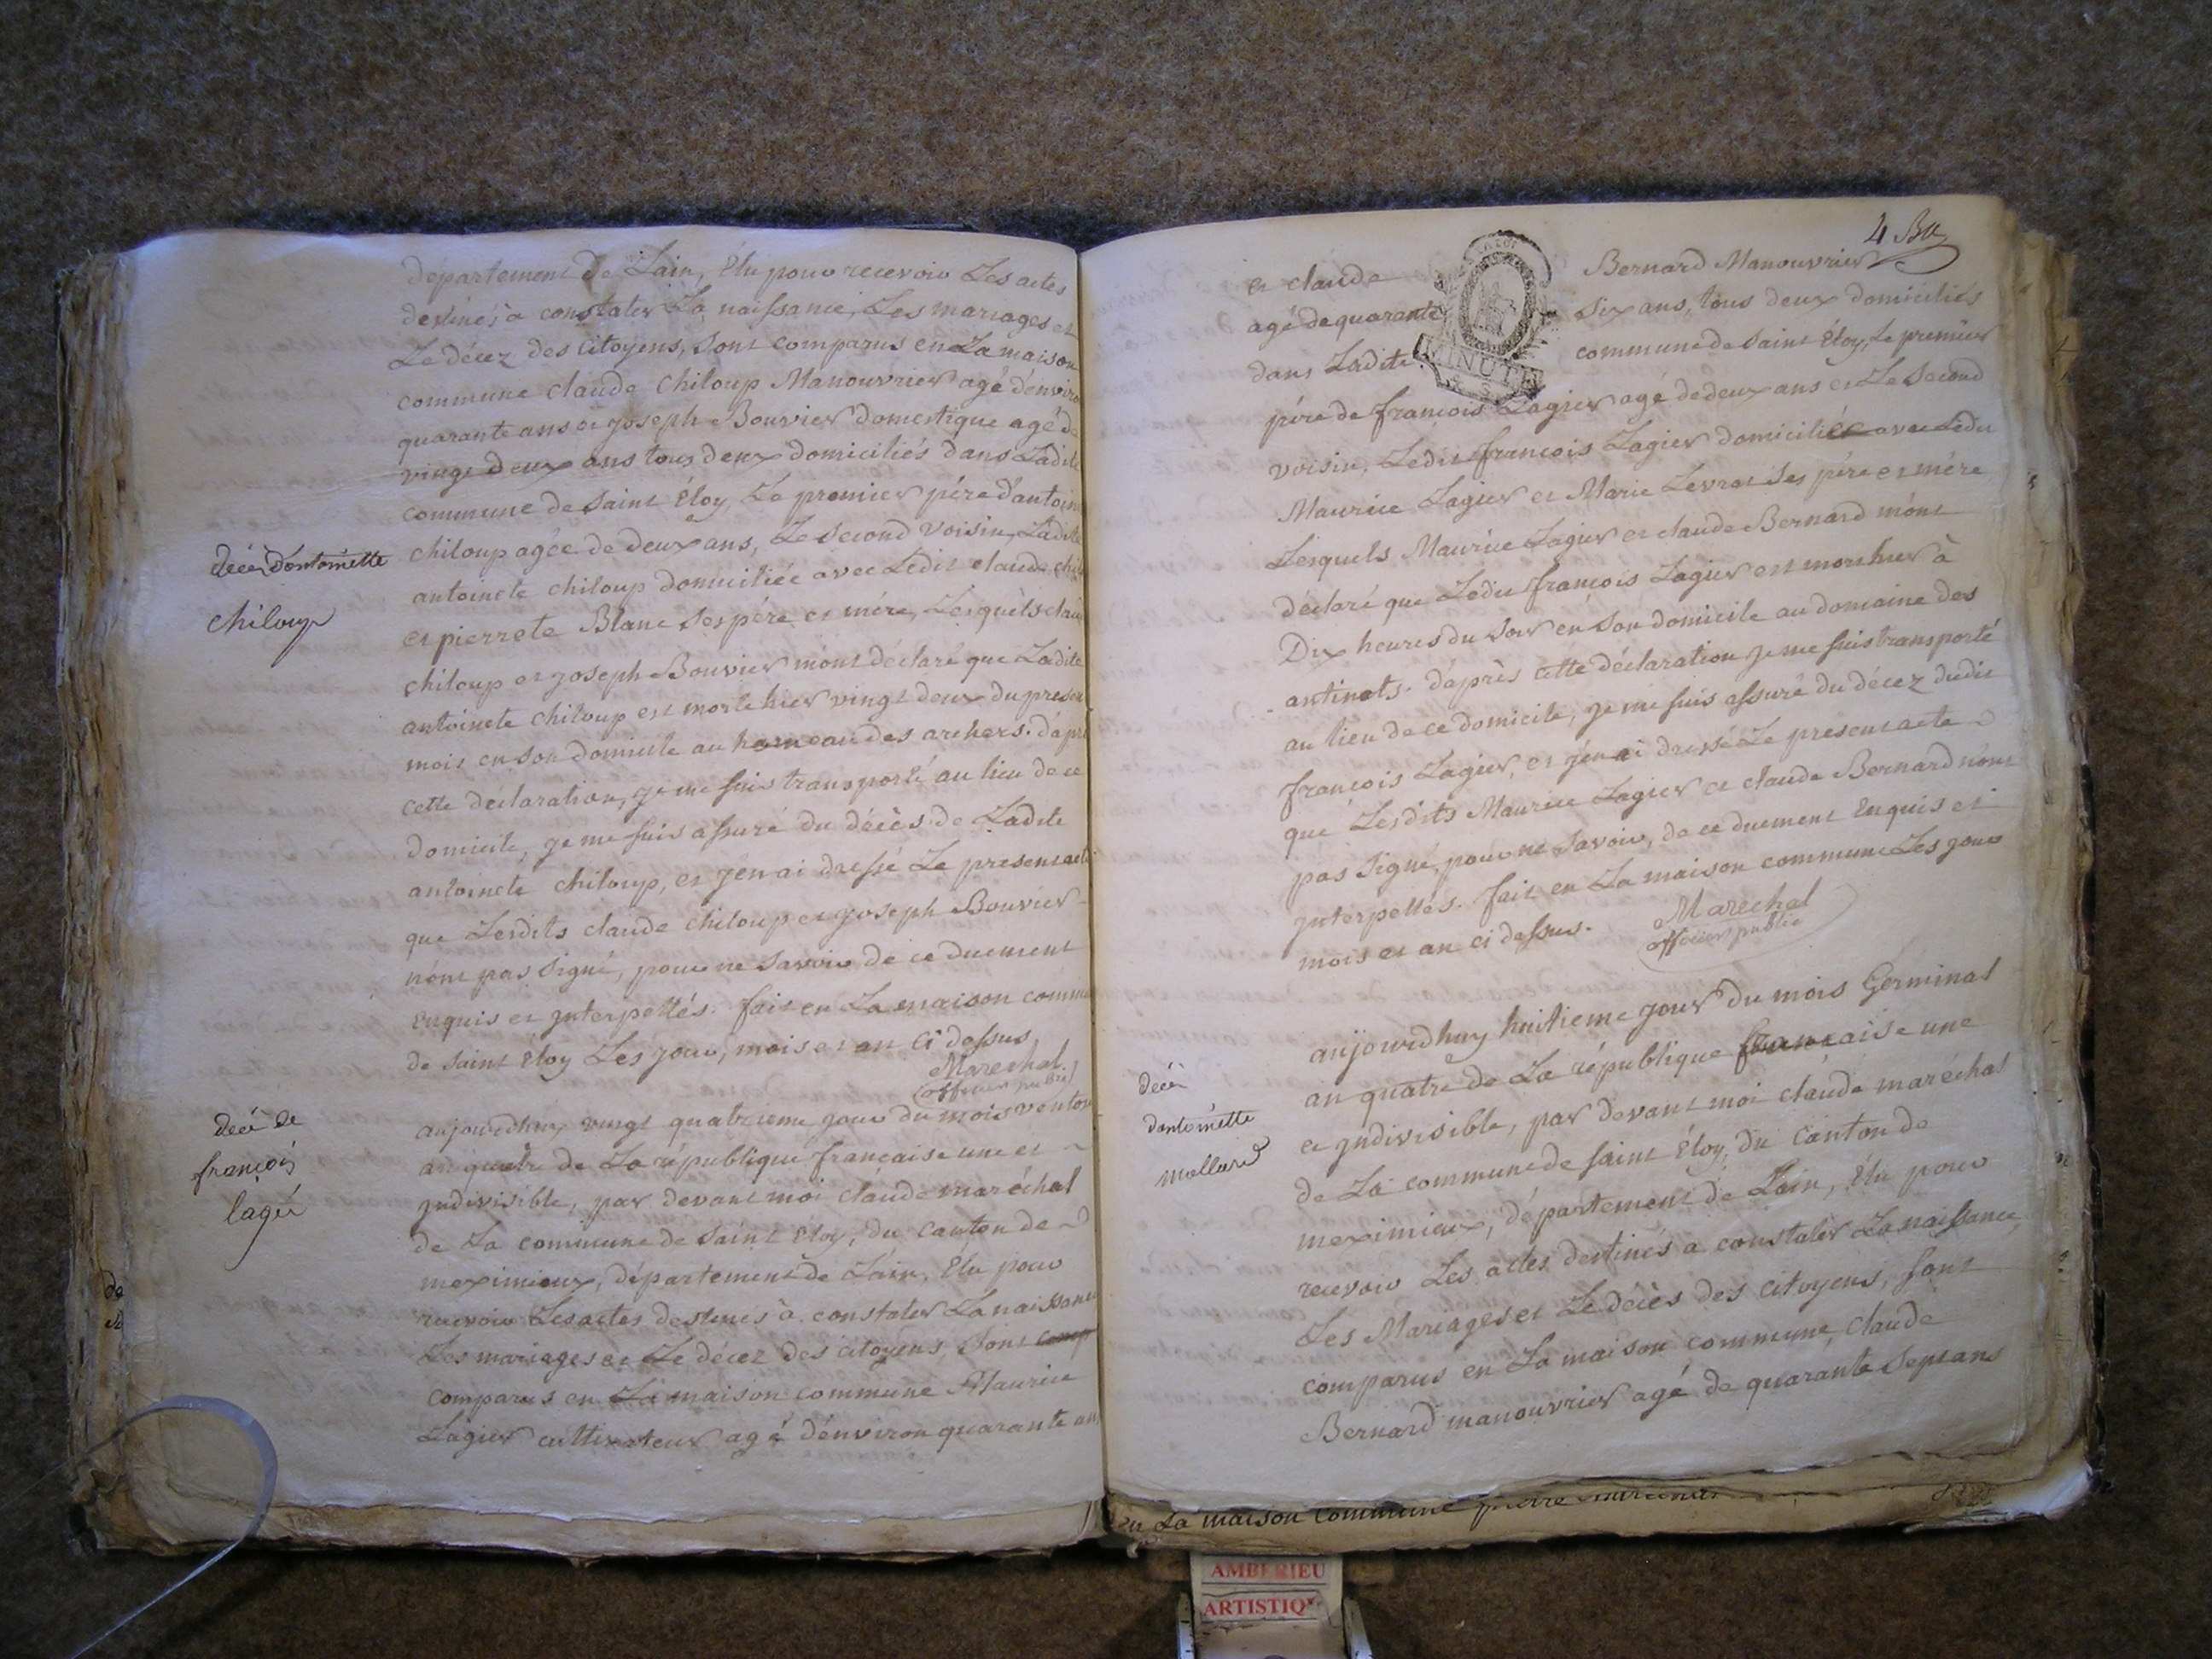 département de Lain, Élu pour recevoir Les actes
destinés à constater La naissance, Les mariages et
Le décez des Citoyens, sont comparus en La maison
commune claude Chiloup Manouvrier agé d'enviro
quarante ans et joseph Bouvier domestique agé de
vingt deux ans tous deux domiciliés dans Ladite
commune de Saint Éloy, Le premier pére d'antoin
chiloup agée de deux ans, Le second voisin, Ladite
antoinete chiloup domiciliée avec Ledit claude chil
et pierrete Blanc ses pére et mére, Lesquéls clau
chiloup et joseph Bouvier m'ont déclaré que Ladite
antoinete chiloup est morte hier vingt deux du presen
mois en son domicile au hameau des archers. d'apr
cette déclaration, je me suis transporté au lieu de ce
domicile, je me suis assuré du décès de Ladite
antoinete chiloup, et j'en ai dressé Le present acte
que Lesdits claude chiloup et joseph Bouvier
n'ont pas signé, pour ne savoir de ce duement
Enquis et jnterpellés. fait en La maison commu
de saint Eloy Les jour, mois et an ci dessus
Marechal
officier public
décès d'antoinette
chiloup
aujourdhuy vingt quatrieme jour du mois ventos
an quatre de La république française une et
jndivisible, par devant moi claude maréchal
de La commune de Saint Eloy, du canton de
meximieux, département de Lain, Élu pour
recevoir Les actes destinés à constater La naissance
Les mariages et Le décez des citoyens, sont comp
comparus en La maison commune Maurice
Lagier cultivateur agé d'environ quarante ans
décé de
françois
lagié
4 Bu
et claude Bernard Manouvrier
agé de quarante six ans, tous deux domiciliés
dans Ladite commune de saint Éloy, Le premier
MINUTE
pére de françois Lagier agé de deux ans et Le second
voisin, Ledit françois Lagier domicilié avec Ledit
Maurice Lagier et Marie Levrat ses pére et mére
Lesquels Maurice Lagier et claude Bernard m'ont
déclaré que Ledit françois Lagier est mort hier à
Dix heures du soir en son domicile au domaine des
antinots. d'après cette déclaration je me suis transporté
au lieu de ce domicile, je me suis assuré du décez dudit
françois Lagier, et j'en ai dressé Le present acte
que Lesdits Maurice Lagier et claude Bernard n'ont
pas signé, pour ne savoir, de ce duement Enquis et
jnterpellés. fait en La maison commune Les jour
mois et an ci dessus.
Marechal
officier public
aujourdhuy huitieme jour du mois Germinal
an quatre de La république francaise une
et jndivisible, par devant moi claude maréchal
de La commune de saint Éloy, du Canton de
meximieux, département de Lain, Élu pour
recevoir Les actes destinés a constater La naissance,
Les Mariages et Le décès des citoyens, sont
comparus en La maison commune, claude
Bernard manouvrier agé de quarante sept ans
décé
dantoinette
mollard
en La maison commune pierre
AMBERIEU
ARTISTIQ